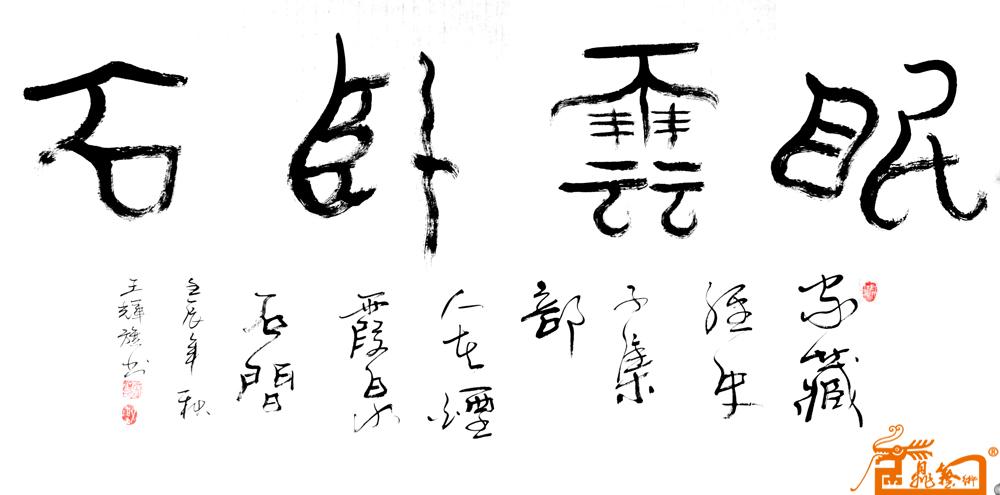 眠雲卧石
家藏
經史
子集
部
人在煙
霞泉
石間
壬辰年秋
王輝旗书